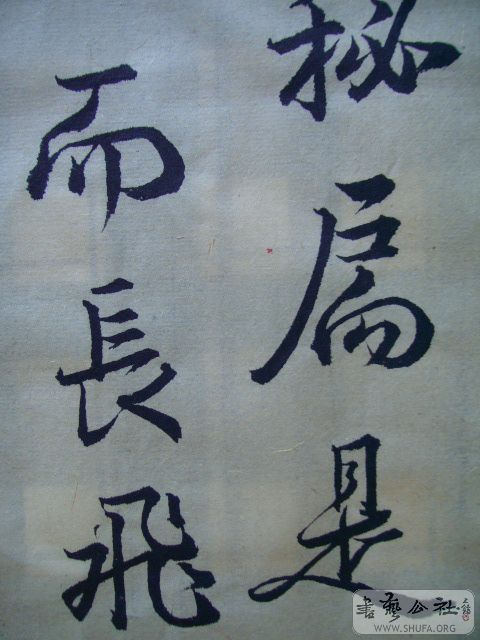 秘扃是
而長飛
書藝公社
WWW.SHUFA.ORG